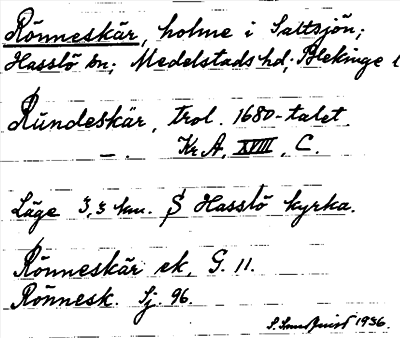 Rönneskär, holme i Saltsjön;
Hasslö sn; Medelstads hd; Blekinge l
Rundeskär, trol. 1680-talet
—. Kr A, XVIII, C.
Läge 3,3 km. S Hasslö kyrka.
Rönneskär ek, G. 11.
Rönnesk. Sj. 96.
S. 1936.